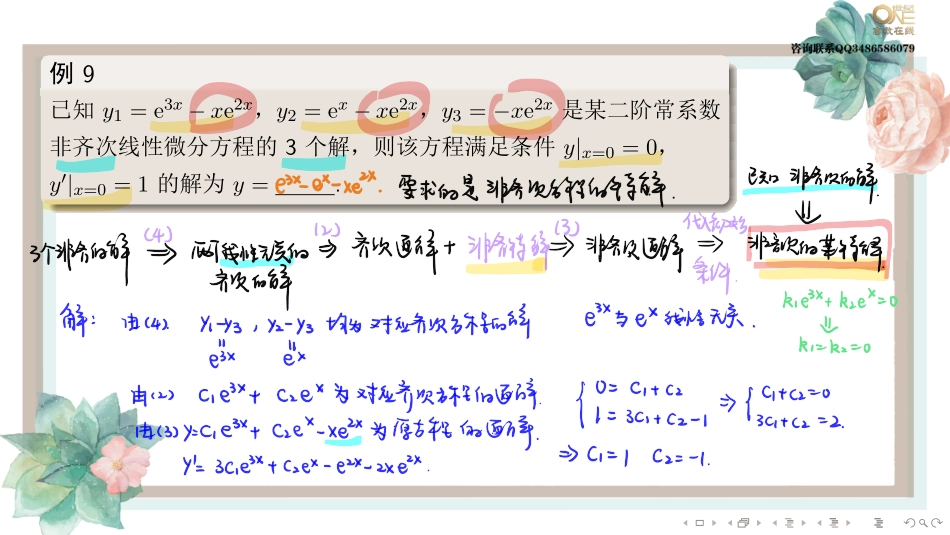 ONE
高数在线
咨询联系QQ3486586079
例 9
已知 y₁ = e³ˣ − xe²ˣ，y₂ = eˣ − xe²ˣ，y₃ = −xe²ˣ 是某二阶常系数
非齐次线性微分方程的 3 个解，则该方程满足条件 y|ₓ₌₀ = 0，
y′|ₓ₌₀ = 1 的解为 y = e³ˣ-eˣ-xe²ˣ. 要求的是非齐次方程的特解.
已知 非齐次的解
⇓
3个非齐的解 (4)⇒ 两个线性无关的齐次的解 (2)⇒ 齐次通解 + 非齐特解 (3)⇒ 非齐次通解 代初始条件⇒ 非齐次的某特解.
解: 由(4) y₁-y₃ , y₂-y₃ 均为对应齐次方程的解 e³ˣ与eˣ线性无关.
= e³ˣ = eˣ
k₁e³ˣ+k₂eˣ=0
⇓
k₁=k₂=0
由(2) C₁e³ˣ+ C₂eˣ 为对应齐次方程的通解.
由(3) y=C₁e³ˣ+ C₂eˣ-xe²ˣ 为原方程的通解.
y′= 3C₁e³ˣ+C₂eˣ-e²ˣ-2xe²ˣ.
{ 0= C₁+C₂ ⇒ { C₁+C₂=0
1= 3C₁+C₂-1 3C₁+C₂=2.
⇒ C₁=1 C₂=-1.